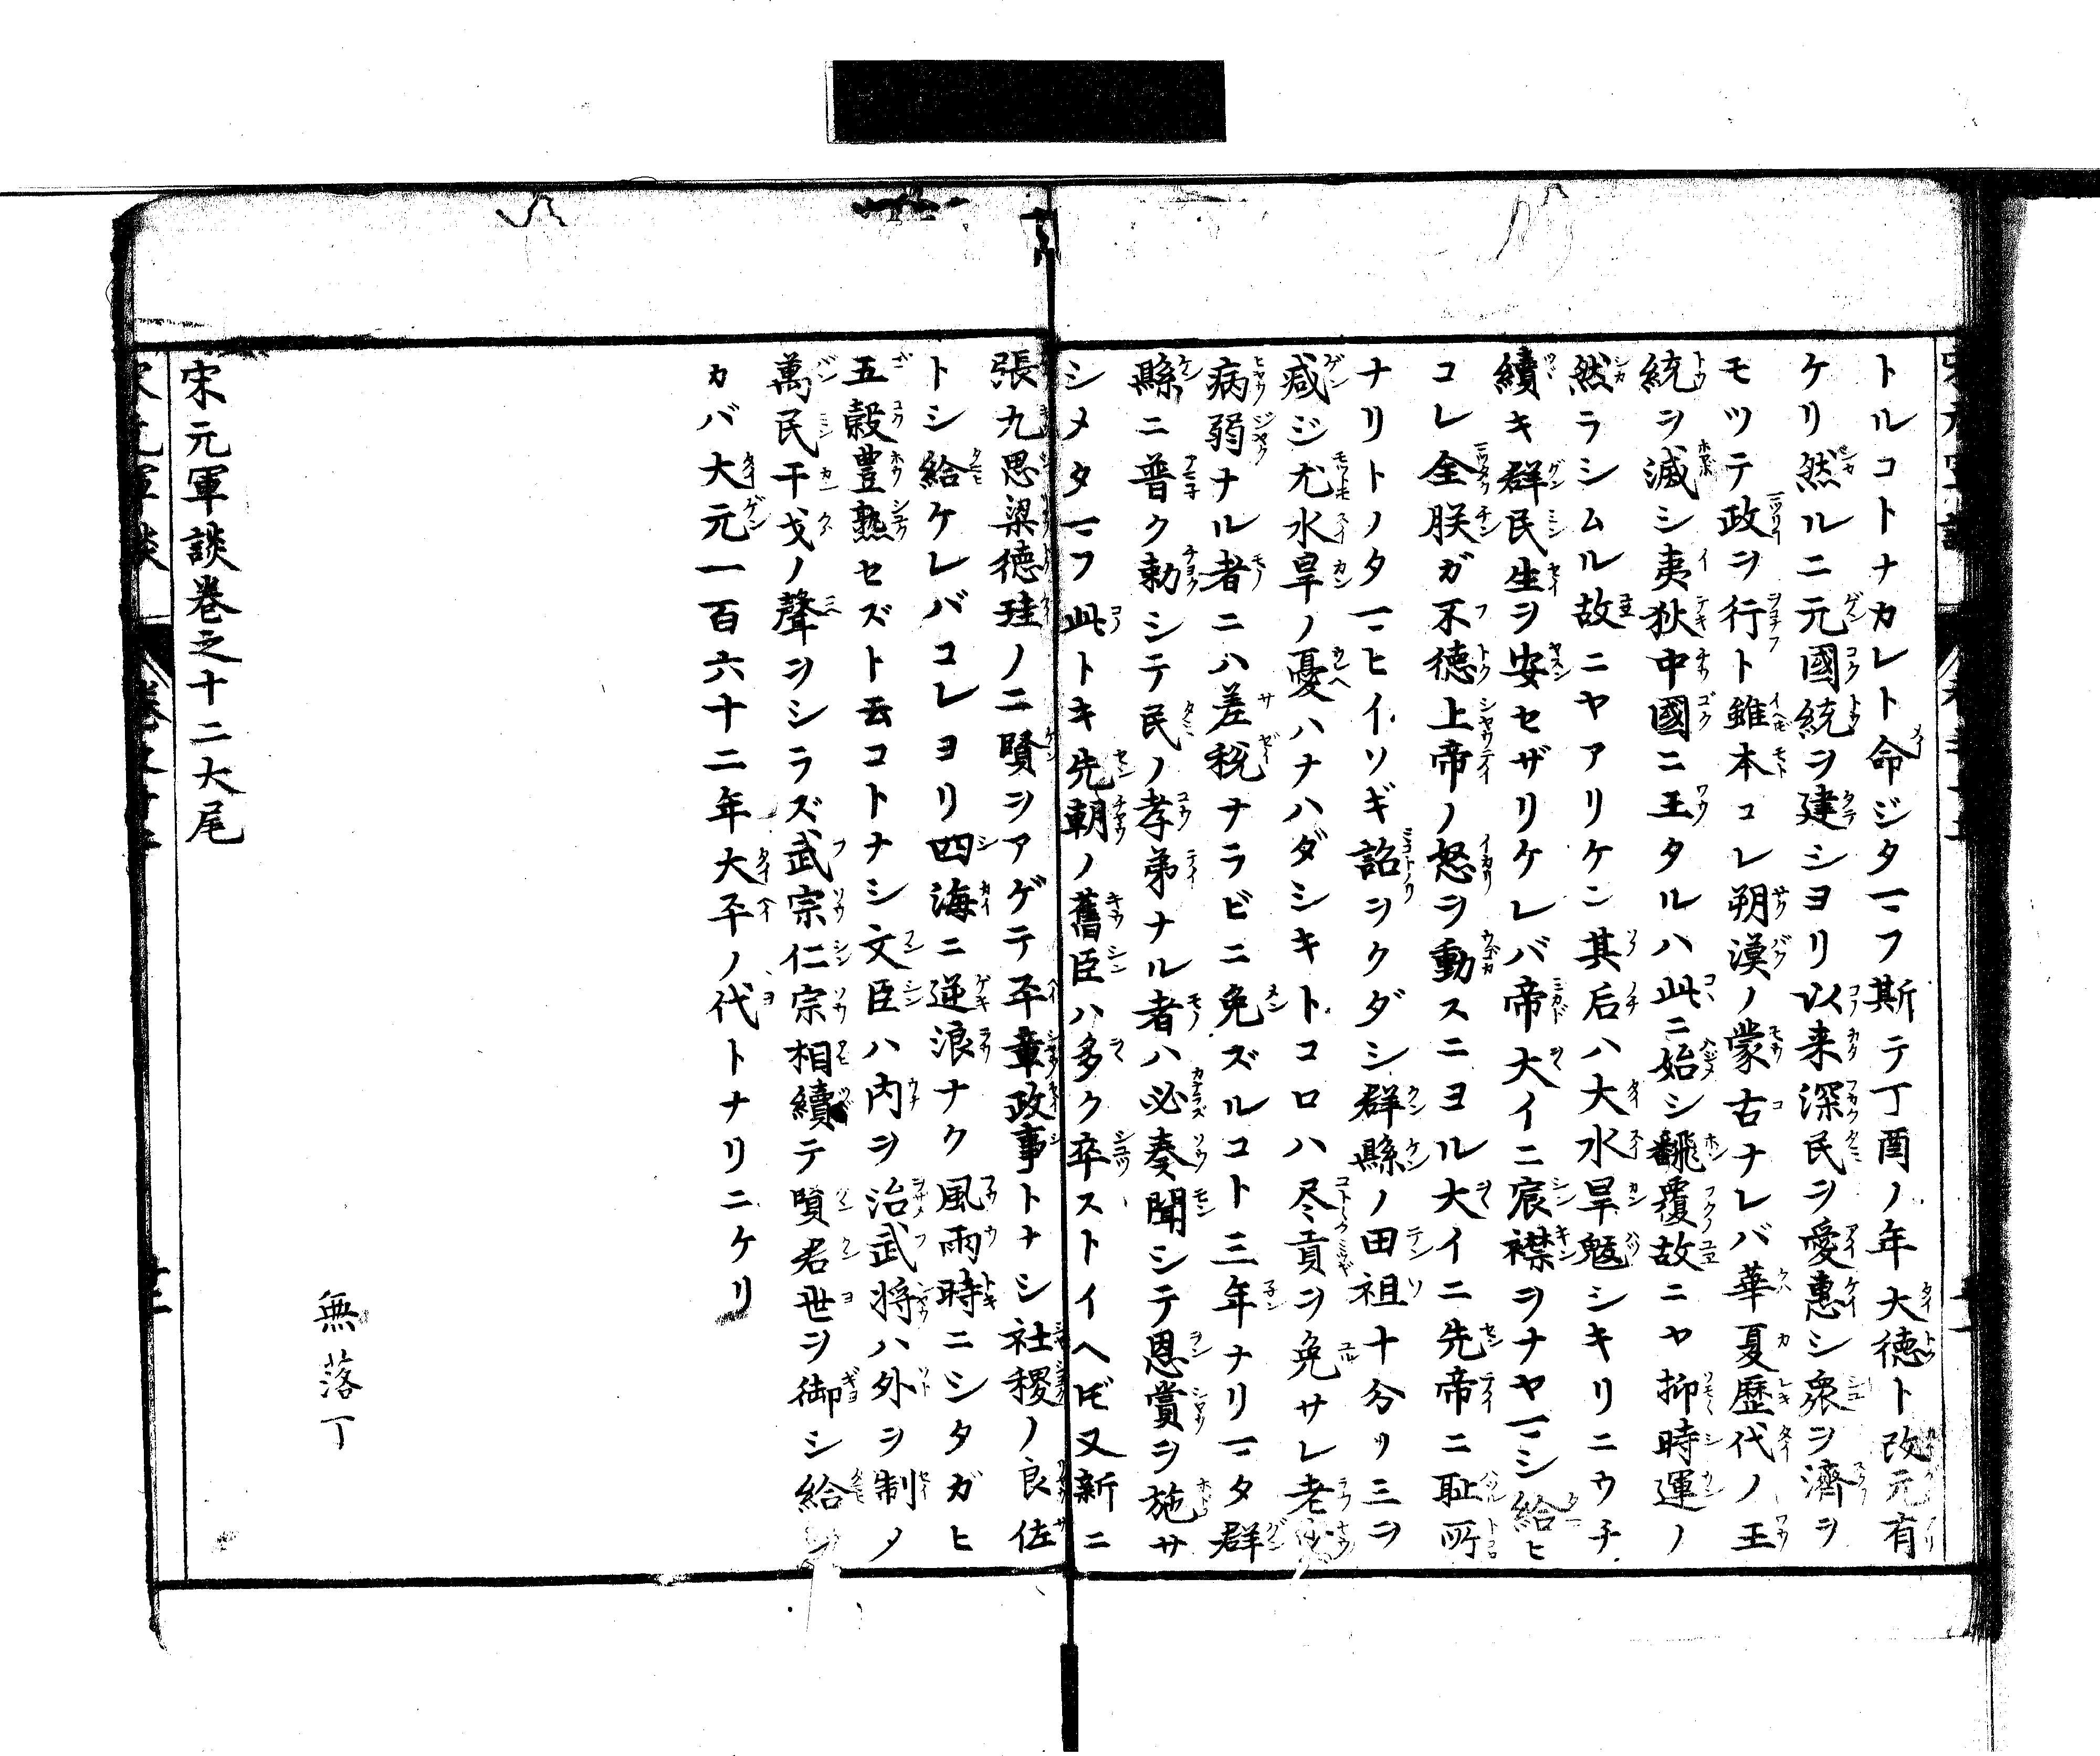 トルコトナカレト命ジタマフ斯テ丁酉ノ年大徳ト改元有
ケリ然ルニ元國統ヲ建シヨリ以来深民ヲ愛惠シ衆ヲ濟ヲ
モツテ政ヲ行ト雖本コレ朔漠ノ蒙古ナレバ華夏歴代ノ王
統ヲ滅シ夷狄中國ニ王タルハ此ニ始シ飜覆故ニヤ抑時運ノ
然ラシムル故ニヤアリケン其后ハ大水旱魃シキリニウチ
續キ群民生ヲ安セザリケレバ帝大イニ宸襟ヲナヤマシ給ヒ
コレ全朕ガ不徳上帝ノ怒ヲ動スニヨル大イニ先帝ニ耻所
ナリトノタマヒイソギ詔ヲクダシ群縣ノ田祖十分ノ三ヲ
减ジ尤水旱ノ憂ハナハダシキトコロハ尽貢ヲ免サレ老少
病弱ナル者ニハ差税ナラビニ免ズルコト三年ナリマタ群
縣ニ普ク勅シテ民ノ孝弟ナル者ハ必奏聞シテ恩賞ヲ施サ
シメタマフ此トキ先朝ノ舊臣ハ多ク卒ストイヘ𪜈又新ニ
張九思梁徳珪ノ二賢ヲアゲテ平章政事トナシ社稷ノ良佐
トシ給ケレバコレヨリ四海ニ逆浪ナク風雨時ニシタガヒ
五穀豊熟セズト云コトナシ文臣ハ内ヲ治武将ハ外ヲ制ノ
萬民干戈ノ聲ヲシラズ武宗仁宗相續テ賢君世ヲ御シ給
カバ大元一百六十二年大平ノ代トナリニケリ
無落丁
宋元軍談巻之十二大尾